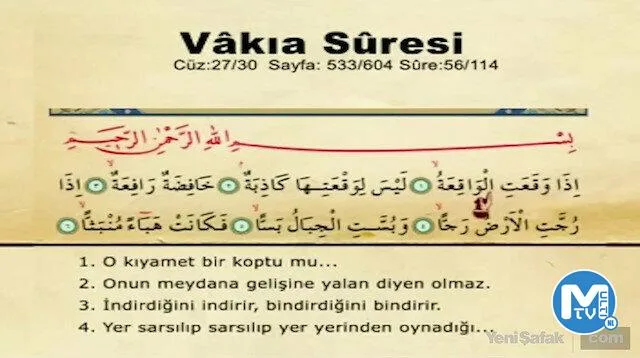 Vâkıa Sûresi
Cüz:27/30 Sayfa: 533/604 Sûre:56/114
بِسْمِ اللّٰهِ الرَّحْمٰنِ الرَّحٖيمِ
اِذَا وَقَعَتِ الْوَاقِعَةُۙ ﴿١﴾ لَيْسَ لِوَقْعَتِهَا كَاذِبَةٌۘ ﴿٢﴾ خَافِضَةٌ رَافِعَةٌۙ ﴿٣﴾ اِذَا
رُجَّتِ الْاَرْضُ رَجًّاۙ ﴿٤﴾ وَبُسَّتِ الْجِبَالُ بَسًّاۙ ﴿٥﴾ فَكَانَتْ هَبَٓاءً مُنْبَثًّاۙ ﴿٦﴾
1. O kıyamet bir koptu mu...
2. Onun meydana gelişine yalan diyen olmaz.
3. İndirdiğini indirir, bindirdiğini bindirir.
4. Yer sarsılıp sarsılıp yer yerinden oynadığı...
M ULTI TV NL
YeniŞafak .com